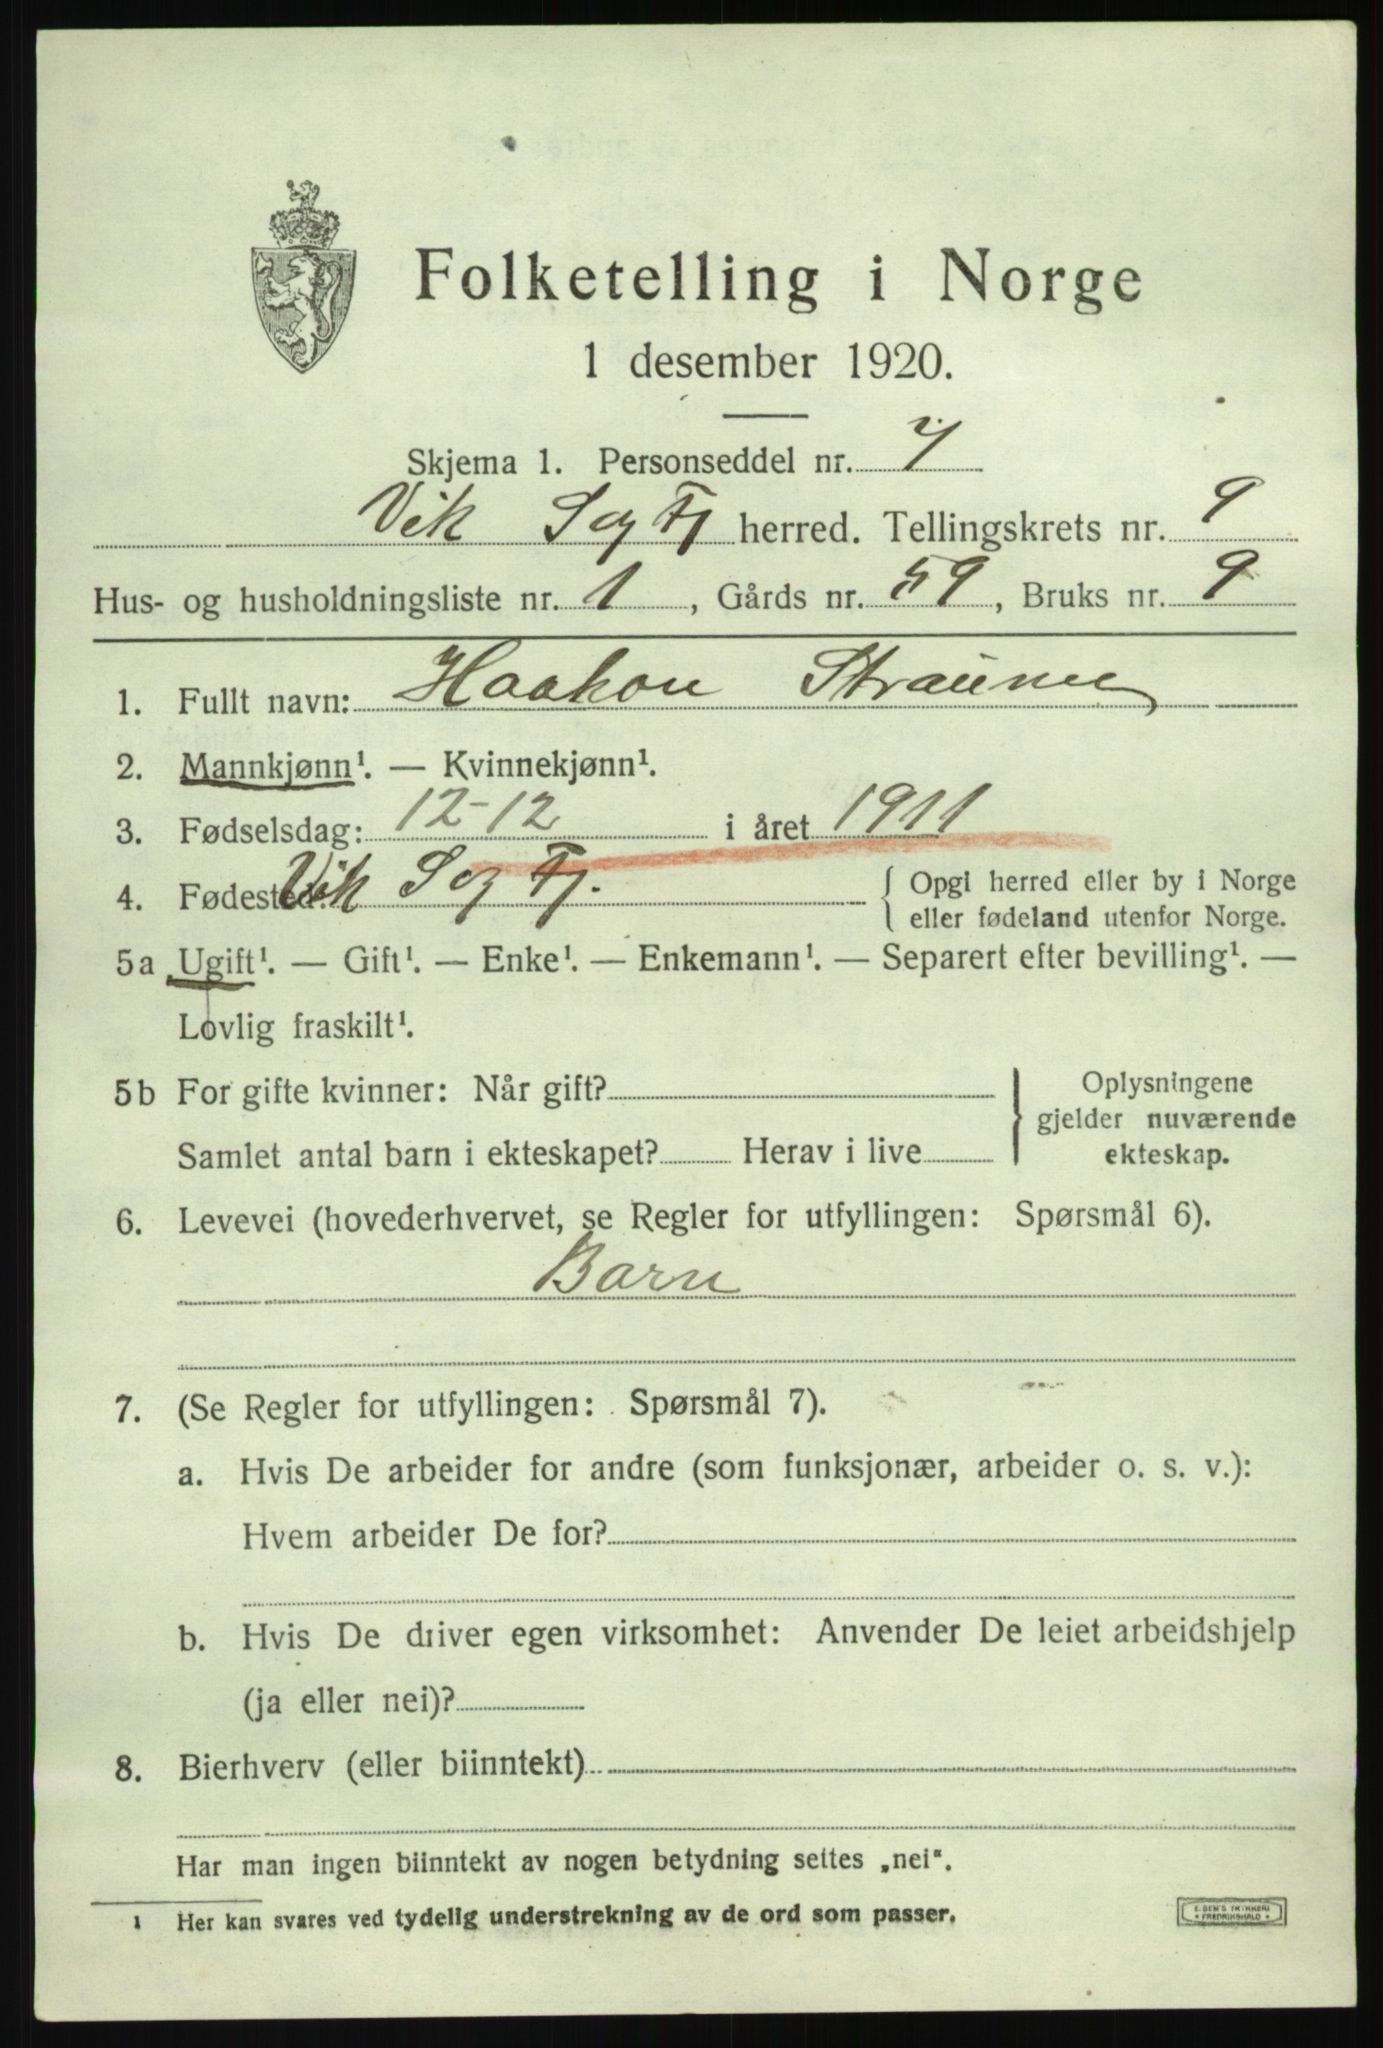 Folketelling i Norge
1 desember 1920.
Skjema 1. Personseddel nr. 7
Vik S og Fj herred. Tellingskrets nr. 9
Hus- og husholdningsliste nr. 1, Gårds nr. 59, Bruks nr. 9
1. Fullt navn: Haakon Straume
2. Mannkjønn¹. — Kvinnekjønn¹.
3. Fødselsdag: 12-12 i året 1911
4. Fødested: Vik S og Fj. { Opgi herred eller by i Norge
eller fødeland utenfor Norge.
5a Ugift¹. — Gift¹. — Enke¹. — Enkemann¹. — Separert efter bevilling¹. —
Lovlig fraskilt¹.
5b For gifte kvinner: Når gift? } Oplysningene
gjelder nuværende
Samlet antal barn i ekteskapet? Herav i live ekteskap.
6. Levevei (hovederhvervet, se Regler for utfyllingen: Spørsmål 6).
Barn
7. (Se Regler for utfyllingen: Spørsmål 7).
a. Hvis De arbeider for andre (som funksjonær, arbeider o. s. v.):
Hvem arbeider De for?
b. Hvis De driver egen virksomhet: Anvender De leiet arbeidshjelp
(ja eller nei)?
8. Bierhverv (eller biinntekt)
Har man ingen biinntekt av nogen betydning settes „nei".
1 Her kan svares ved tydelig understrekning av de ord som passer.
E. SEM'S TRYKKERI
• FREDRIKSHALD •